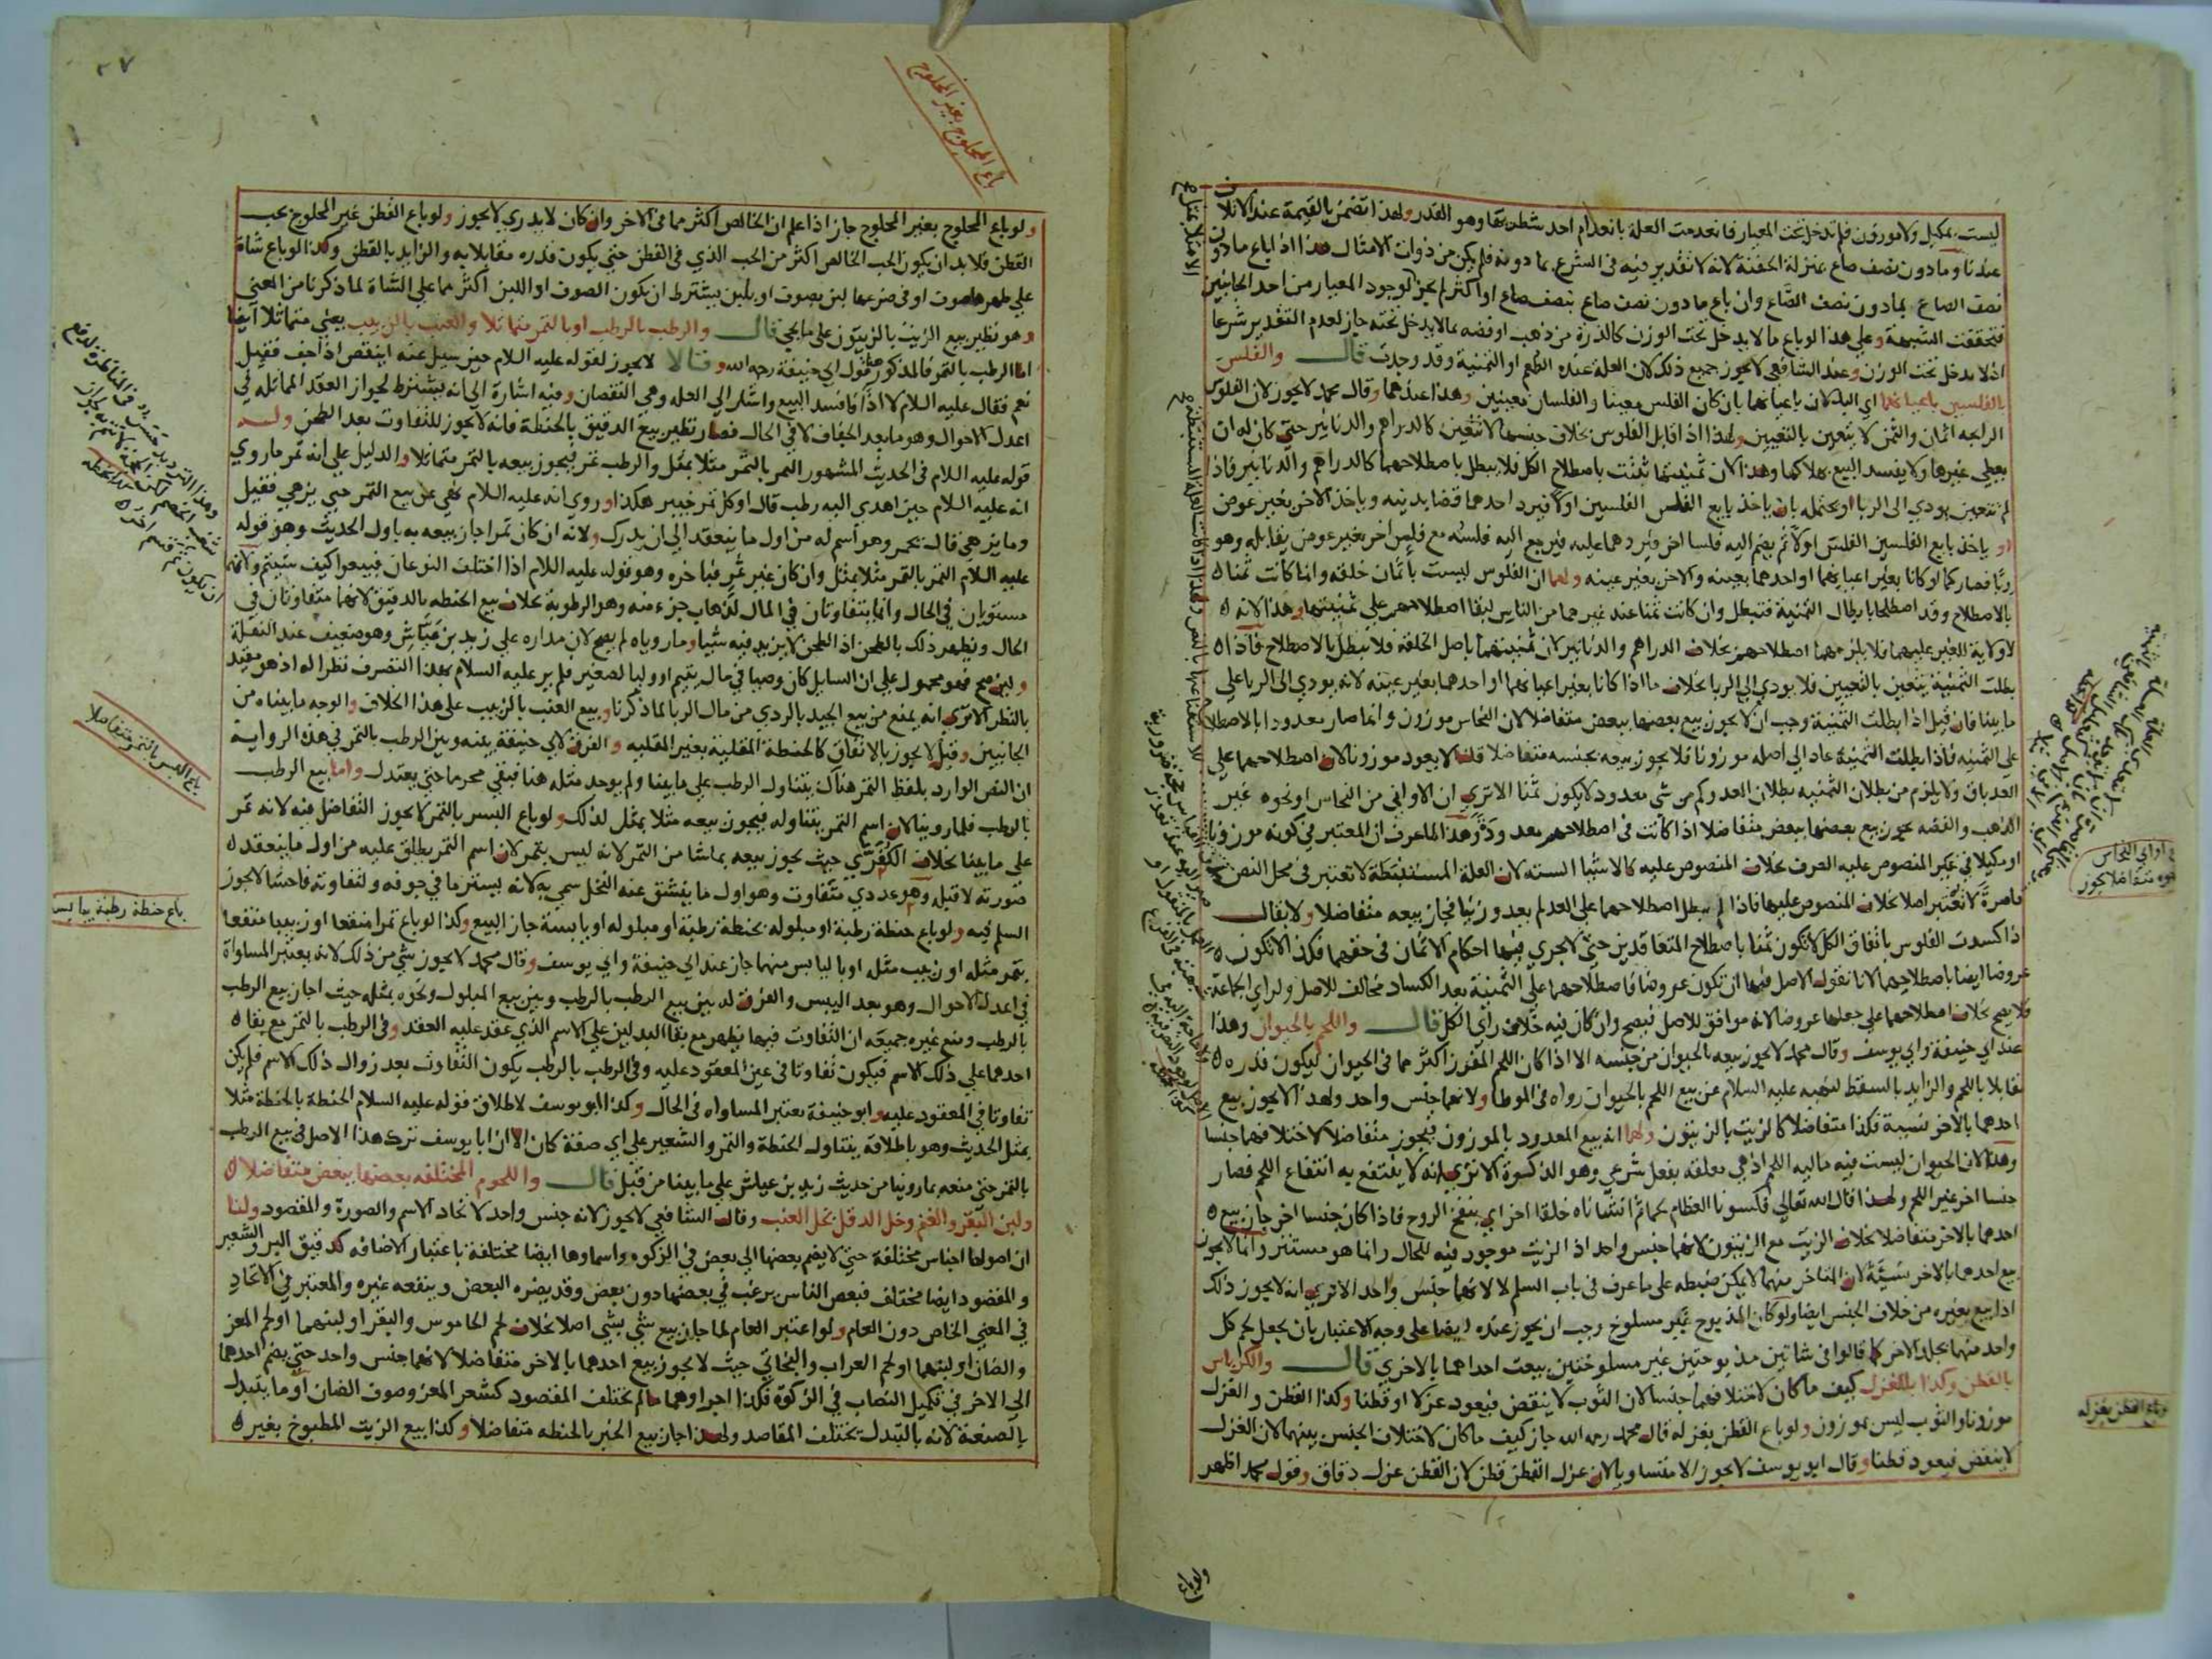 ليست بمكيل ولا موزون فلم تدخل تحت المعيار فانعدمت العلة بانعدام احد شطريها وهو القدر ولهذا تضمن بالقيمة عند الاتلاف
عندنا وما دون نصف صاع بمنزلة الحفنة لانه لا تقدير فيه في الشرع بما دونه فلم يكن من ذوات الامثال هذا اذا باع ما دون
نصف الصاع بما دون نصف الصاع وان باع ما دون نصف صاع بنصف صاع او اكثر لم يجز لوجود المعيار من احد الجانبين
فتحققت الشبهة وعلى هذا لو باع ما لا يدخل تحت الوزن كالذرة من ذهب او فضه بما لا يدخل تحته جاز لعدم التقدير شرعا
اذ لا يدخل تحت الوزن وعند الشافعي لا يجوز جميع ذلك لان العلة عنده الطعم او الثمنية وقد وجدت قال والفلس
بالفلسين باعيانهما اي البدلان باعيانهما بان كان الفلس معينا والفلسان معينين وهذا عندهما وقال محمد لا يجوز لان الفلوس
الرايجه اثمان والثمن لا يتعين بالتعيين ولهذا اذا قابل الفلوس بخلاف جنسها لا تتعين كالدراهم والدنانير حتى كان له ان
يعطي غيرها ولا يفسد البيع بهلاكها وهذا لان ثمنيتها ثبتت باصطلاح الكل فلا يبطل باصطلاحهما كالدراهم والدنانير فاذا
لم تتعين يودي الى الربا او يحتمله بان ياخذ بايع الفلس الفلسين اولا فيرد احدهما قضا بدينه وياخذ الاخر بغير عوض
او ياخذ بايع الفلسين الفلس اولا ثم يضم اليه فلسا اخر فيردهما عليه فيرجع اليه فلسه مع فلس اخر بغير عوض يقابله وهو
ربا فصار كما لو كانا بغير اعيانهما او احدهما بعينه والاخر بغير عينه ولهما ان الفلوس ليست باثمان خلقه وانما كانت ثمنا
بالاصطلاح وقد اصطلحا بابطال الثمنية فتبطل وان كانت ثمنا عند غيرهما من الناس لبقا اصطلاحهم على ثمنيتها وهذا لانه
لا ولاية للغير عليهما فلا يلزمهما اصطلاحهم بخلاف الدراهم والدنانير لان ثمنيتهما باصل الخلقه فلا تبطل بالاصطلاح فاذا
بطلت الثمنية يتعين بالتعيين فلا يودي الى الربا بخلاف ما اذا كانا بغير اعيانهما او احدهما بغير عينه لانه يودي الى الربا على
ما بينا فان قيل اذا بطلت الثمنية وجب ان لا يجوز بيع بعضها ببعض متفاضلا لان النحاس موزون وانما صار معدودا بالاصطلاح
على الثمنيه فاذا بطلت الثمنية عاد الى اصله موزونا فلا يجوز بيعه بجنسه متفاضلا قلنا لا يعود موزونا لان اصطلاحهما على
العد باق ولا يلزم من بطلان الثمنيه بطلان العد وكم من شي معدود لا يكون ثمنا الا ترى ان الاواني من النحاس او نحوه غير
الذهب والفضه يجوز بيع بعضها ببعض متفاضلا اذا كانت في اصطلاحهم بعد وذا وهذا لما عرف ان المعتبر في كونه موزونا
او مكيلا في غير المنصوص عليه العرف بخلاف المنصوص عليه كالاشيا السته لان العلة المستنبطة لا تعتبر في محل النص
قاصرة لا تعتبر اصلا بخلاف المنصوص عليها فاذا لم يبطل اصطلاحهما على العد لم يعد وزنيا فجاز بيعه متفاضلا ولا يقال
اذا كسدت الفلوس باتفاق الكل لا تكون ثمنا باصطلاح المتعاقدين حتى لا يجري فيها احكام الاثمان في حقهما فكذا لا تكون
عروضا ايضا باصطلاحهما لانا نقول الاصل فيها ان تكون عروضا فاصطلاحهما على الثمنية بعد الكساد مخالف للاصل ولراي الجماعة
فلا يصح بخلاف اصطلاحهما على جعلها عروضا لانه موافق للاصل فيصح وان كان فيه خلاف راي الكل قال واللحم بالحيوان وهذا
عند ابي حنيفة وابي يوسف وقال محمد لا يجوز بيعه بالحيوان من جنسه الا اذا كان اللحم المفرز اكثر مما في الحيوان ليكون قدره
مقابلا باللحم والزايد بالسقط لنهيه عليه السلام عن بيع اللحم بالحيوان رواه في الموطا ولانهما جنس واحد ولهذا لا يجوز بيع
احدهما بالاخر نسيية فكذا متفاضلا كالزيت بالزيتون ولهما انه بيع المعدود بالموزون فيجوز متفاضلا لاختلافهما جنسا
وهذا لان الحيوان ليست فيه ماليه اللحم اذ هي معلقه بفعل شرعي وهو الذكوة الا ترى انه لا ينتفع به انتفاع اللحم فصار
جنسا اخر غير اللحم ولهذا قال الله تعالى فكسونا العظام لحما ثم انشاناه خلقا اخر اي بنفخ الروح فاذا كان جنسا اخر جاز بيع
احدهما بالاخر متفاضلا بخلاف الزيت مع الزيتون لانهما جنس واحد اذ الزيت موجود فيه للحال وانما هو مستتر وانما لا يجوز
بيع احدهما بالاخر نسيئة لان المتاخر منهما لا يمكن ضبطه على ما عرف في باب السلم لا لانهما جنس واحد الا ترى انه لا يجوز ذلك
اذا بيع بغيره من خلاف الجنس ايضا ولو كان المذبوح غير مسلوخ وجب ان يجوز عنده ايضا على وجه الاعتبار بان يجعل لحم كل
واحد منهما بجلد الاخر كما قالوا في شاتين مذبوحتين غير مسلوختين بيعت احداهما بالاخرى قال والكرباس
بالقطن وكذا بالغزل كيف ما كان لاختلافهما جنسا لان الثوب لا ينقض فيعود غزلا او قطنا وكذا القطن والغزل
موزونا والثوب ليس بموزون ولو باع القطن بغزله قال محمد رحمه الله جاز كيف ما كان لاختلاف الجنس بينهما لان الغزل
لا ينقض فيعود قطنا وقال ابو يوسف لا يجوز الا متساويا لان غزل القطن قطن لان القطن غزل دقاق وقول محمد اظهر
في اواني النحاس
متفاضلا يجوز
وباع القطن بغزله
باع المحلوج بغير المحلوج
٢٧
ولو باع المحلوج بغير المحلوج جاز اذا علم ان الخالص اكثر مما في الاخر وان كان لا يدري لا يجوز ولو باع القطن غير المحلوج بحب
القطن فلا بد ان يكون الحب الخالص اكثر من الحب الذي في القطن حتى يكون قدره مقابلا به والزايد بالقطن وكذا لو باع شاة
على ظهرها صوف او في ضرعها لبن بصوف او بلبن يشترط ان يكون الصوف او اللبن اكثر مما على الشاة لما ذكرنا من المعنى
وهو نظير بيع الزيت بالزيتون على ما يجي قال والرطب بالرطب او بالتمر متماثلا والعنب بالزبيب يعني متماثلا ايضا
اما الرطب بالتمر فالمذكور هنا قول ابي حنيفة رحمه الله وقالا لا يجوز لقوله عليه السلام حين سيل عنه اينقص اذا جف فقيل
نعم فقال عليه السلام لا اذا فافسد البيع واشار الى العله وهي النقصان وفيه اشارة الى انه يشترط لجواز العقد المماثله في
اعدل الاحوال وهو ما بعد الجفاف لا في الحال فصار نظير بيع الدقيق بالحنطة فانه لا يجوز للتفاوت بعد الطحن وله
قوله عليه السلام في الحديث المشهور التمر بالتمر مثلا بمثل والرطب تمر فيجوز بيعه بالتمر متماثلا والدليل على انه تمر ما روي
انه عليه السلام حين اهدي اليه رطب قال اوكل تمر خيبر هكذا وروي انه عليه السلام نهى عن بيع التمر حتى يزهي فقيل
وما يزهي قال يحمر وهو اسم له من اول ما ينعقد الى ان يدرك ولانه ان كان تمرا جاز بيعه به باول الحديث وهو قوله
عليه السلام التمر بالتمر مثلا بمثل وان كان غير تمر فباخره وهو قوله عليه السلام اذا اختلف النوعان فبيعوا كيف شيتم ولانهما
مستويان في الحال وانما يتفاوتان في المال لذهاب جزء منه وهو الرطوبة بخلاف بيع الحنطه بالدقيق لانهما متفاوتان في
الحال ويظهر ذلك بالطحن اذ الطحن لا يزيد فيه شيا وما روياه لم يصح لان مداره على زيد بن عياش وهو ضعيف عند النقلة
ولين صح فهو محمول على ان السايل كان وصيا في مال يتيم او وليا لصغير فلم ير عليه السلام بهذا التصرف نظرا له اذ هو مقيد
بالنظر الا ترى انه يمنع من بيع الجيد بالردي من مال الربا لما ذكرنا وبيع العنب بالزبيب على هذا الخلاف والوجه ما بيناه من
الجانبين وقيل لا يجوز بالاتفاق كالحنطة المقلية بغير المقليه والفرق لابي حنيفة بينه وبين الرطب بالتمر في هذه الرواية
ان النص الوارد بلفظ التمر هناك يتناول الرطب على ما بينا ولم يوجد مثله هنا فبقي محرما حتى يعتدل واما بيع الرطب
بالرطب فلما روينا لان اسم التمر يتناوله فيجوز بيعه مثلا بمثل لذلك ولو باع البسر بالتمر لا يجوز التفاضل فيه لانه تمر
على ما بينا بخلاف الكفري حيث يجوز بيعه بما شا من التمر لانه ليس بتمر لان اسم التمر يطلق عليه من اول ما ينعقد
صورته لا قبله وهو عددي متفاوت وهو اول ما ينشق عنه النخل سمي به لانه يستر ما في جوفه ولتفاوته فاحشا لا يجوز
السلم فيه ولو باع حنطة رطبة او مبلوله بحنطة رطبة او مبلوله او يابسة جاز البيع وكذا لو باع تمرا منقعا او زبيبا منقعا
بتمر مثله او زبيب مثله او باليابس منهما جاز عند ابي حنيفة وابي يوسف وقال محمد لا يجوز شي من ذلك لانه يعتبر المساواة
في اعدل الاحوال وهو بعد اليبس والفرق له بين بيع الرطب بالرطب وبين بيع المبلول ونحوه بمثله حيث اجاز بيع الرطب
بالرطب ومنع غيره جميعه ان التفاوت فيها يظهر مع بقا البدلين على الاسم الذي عقد عليه العقد وفي الرطب بالتمر مع بقا
احدهما على ذلك الاسم فيكون تفاوتا في عين المعقود عليه وفي الرطب بالرطب يكون التفاوت بعد زوال ذلك الاسم فلم يكن
تفاوتا في المعقود عليه وابو حنيفة يعتبر المساواه في الحال وكذا ابو يوسف لاطلاق قوله عليه السلام الحنطة بالحنطة مثلا
بمثل الحديث وهو باطلاقه يتناول الحنطة والتمر والشعير على اي صفة كان الا ان ابا يوسف ترك هذا الاصل في بيع الرطب
بالتمر حتى منعه بما روينا من حديث زيد بن عياش على ما بينا من قبل قال واللحوم المختلفه بعضها ببعض متفاضلا
ولبن البقر والغنم وخل الدقل بخل العنب وقال الشافعي لا يجوز لانه جنس واحد لاتحاد الاسم والصورة والمقصود ولنا
ان اصولها اجناس مختلفة حتى لا يضم بعضها الى بعض في الزكوه واسماوها ايضا مختلفة باعتبار الاضافه كدقيق البر والشعير
والمقصود ايضا مختلف فبعض الناس يرغب في بعضها دون بعض وقد يضره البعض وينفعه غيره والمعتبر في الاتحاد
في المعنى الخاص دون العام ولو اعتبر العام لما جاز بيع شي بشي اصلا بخلاف لحم الجاموس والبقر او لبنهما او لحم المعز
والضان او لبنهما او لحم العراب والبخاتي حيث لا يجوز بيع احدهما بالاخر متفاضلا لانهما جنس واحد حتى يضم احدهما
الى الاخر في تكميل النصاب في الزكوة فكذا اجزاوهما ما لم يختلف المقصود كشعر المعز وصوف الضان او ما يتبدل
بالصنعة لانه بالتبدل تختلف المقاصد ولهذا جاز بيع الخبز بالحنطه متفاضلا وكذا بيع الزيت المطبوخ بغير
باع البسر بالتمر متفاضلا
باع حنطة رطبة بيابس